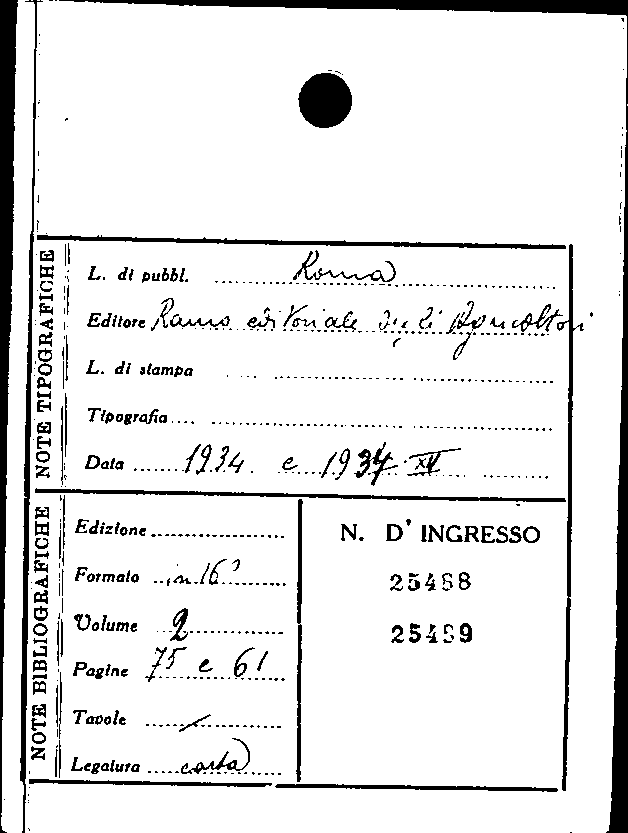 NOTE TIPOGRAFICHE
L. di pubbl. Roma
Editore Ramo editoriale degli Agricoltori
L. di stampa
Tipografia
Data 1934 e 1937 XV
NOTE BIBLIOGRAFICHE
Edizione
Formato in 16°
Volume 2
Pagine 75 e 61
Tavole /
Legatura carta
N. D' INGRESSO
25488
25489